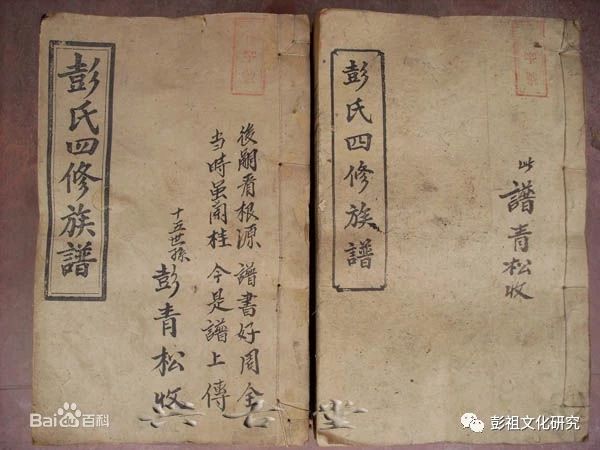 彭氏四修族譜
後嗣看根源 譜書好周全
当時虽桂 今是譜上傳
十五世孫 彭青松收
彭氏四修族譜
此譜青松收
Bai百科
彭祖文化研究